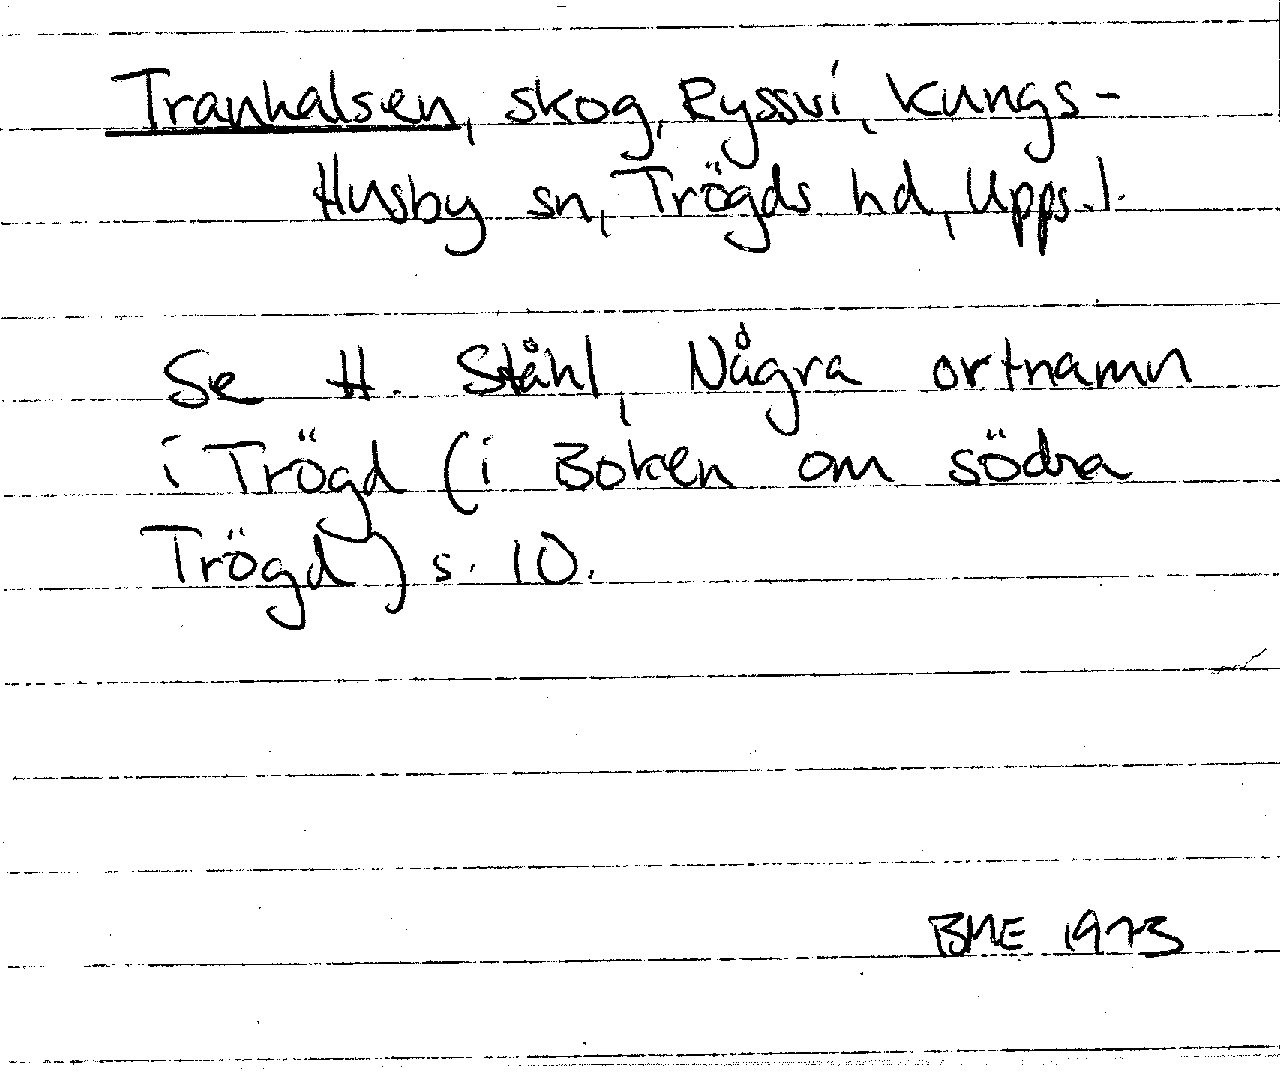 Tranhalsen, skog, Ryssvi, Kungs-
Husby sn, Trögds hd, Upps. l.
Se H. Ståhl, Några ortnamn
i Trögd (i Boken om södra
Trögd) s. 10.
BME 1973